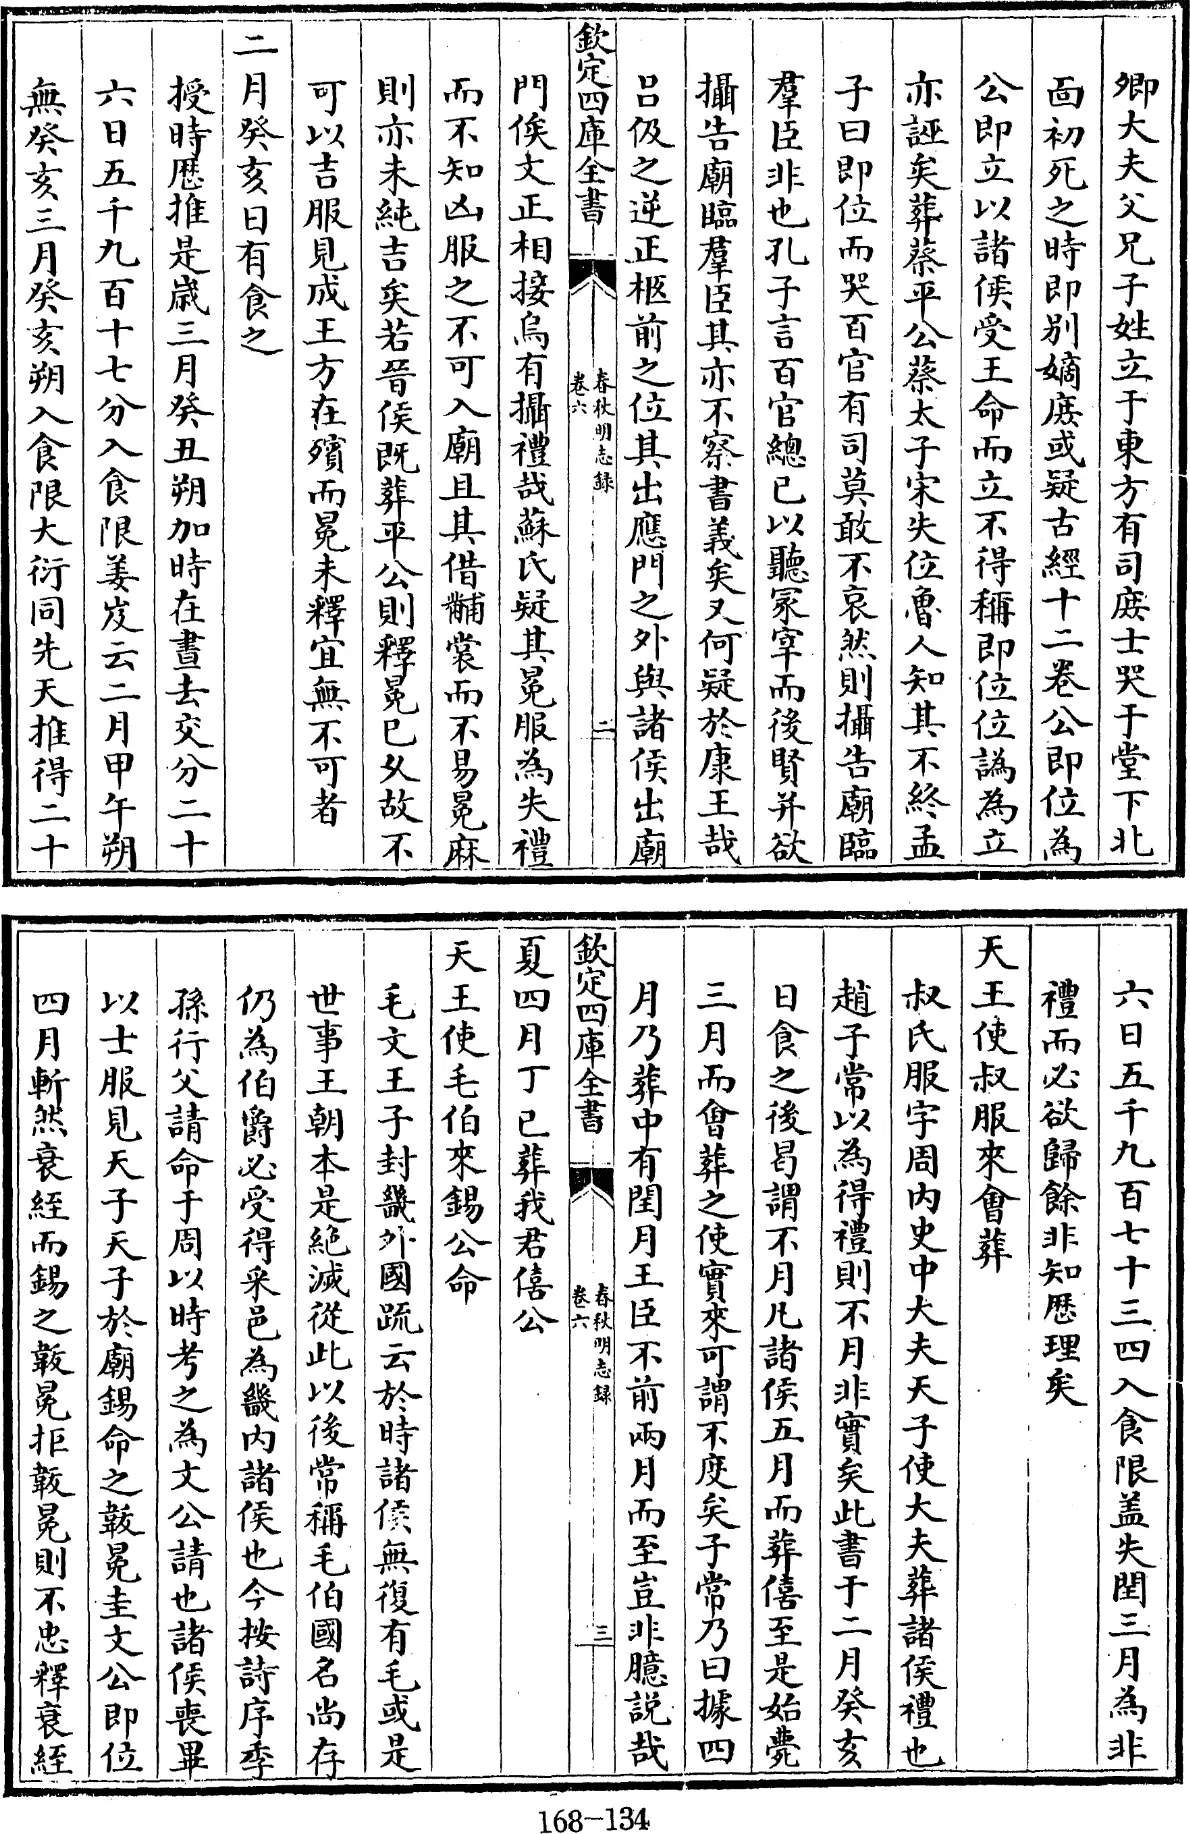 卿大夫父兄子姓立于東方有司庶士哭于堂下北
面初死之時即别嫡庶或疑古經十二卷公即位為
公即立以諸侯受王命而立不得稱即位位譌為立
亦誣矣葬蔡平公蔡太子宋失位魯人知其不終孟
子曰即位而哭百官有司莫敢不哀然則攝告廟臨
羣臣非也孔子言百官總已以聽冢宰而後賢并欲
攝告廟臨羣臣其亦不察書義矣又何疑於康王哉
吕伋之逆正柩前之位其出應門之外與諸侯出廟
欽定四庫全書
春秋明志錄
卷六
二
門俟文正相接烏有攝禮哉蘇氏疑其冕服為失禮
而不知凶服之不可入廟且其借黼裳而不易冕麻
則亦未純吉矣若晉侯既葬平公則釋冕已乆故不
可以吉服見成王方在殯而冕未釋宜無不可者
二月癸亥日有食之
授時厯推是歲三月癸丑朔加時在晝去交分二十
六日五千九百十七分入食限姜岌云二月甲午朔
無癸亥三月癸亥朔入食限大衍同先天推得二十
六日五千九百七十三四入食限盖失閏三月為非
禮而必欲歸餘非知厯理矣
天王使叔服來㑹葬
叔氏服字周内史中大夫天子使大夫葬諸侯禮也
趙子常以為得禮則不月非實矣此書于二月癸亥
日食之後曷謂不月凡諸侯五月而葬僖至是始薨
三月而㑹葬之使實來可謂不度矣子常乃曰據四
月乃葬中有閏月王臣不前兩月而至豈非臆説哉
欽定四庫全書
春秋明志錄
卷六
三
夏四月丁已葬我君僖公
天王使毛伯來錫公命
毛文王子封畿外國䟽云於時諸侯無復有毛或是
世事王朝本是絶滅從此以後常稱毛伯國名尚存
仍為伯爵必受得采邑為畿内諸侯也今按詩序季
孫行父請命于周以時考之為文公請也諸侯喪畢
以士服見天子天子於廟錫命之韍冕圭文公即位
四月斬然衰絰而錫之韍冕拒韍冕則不忠釋衰絰
168-134